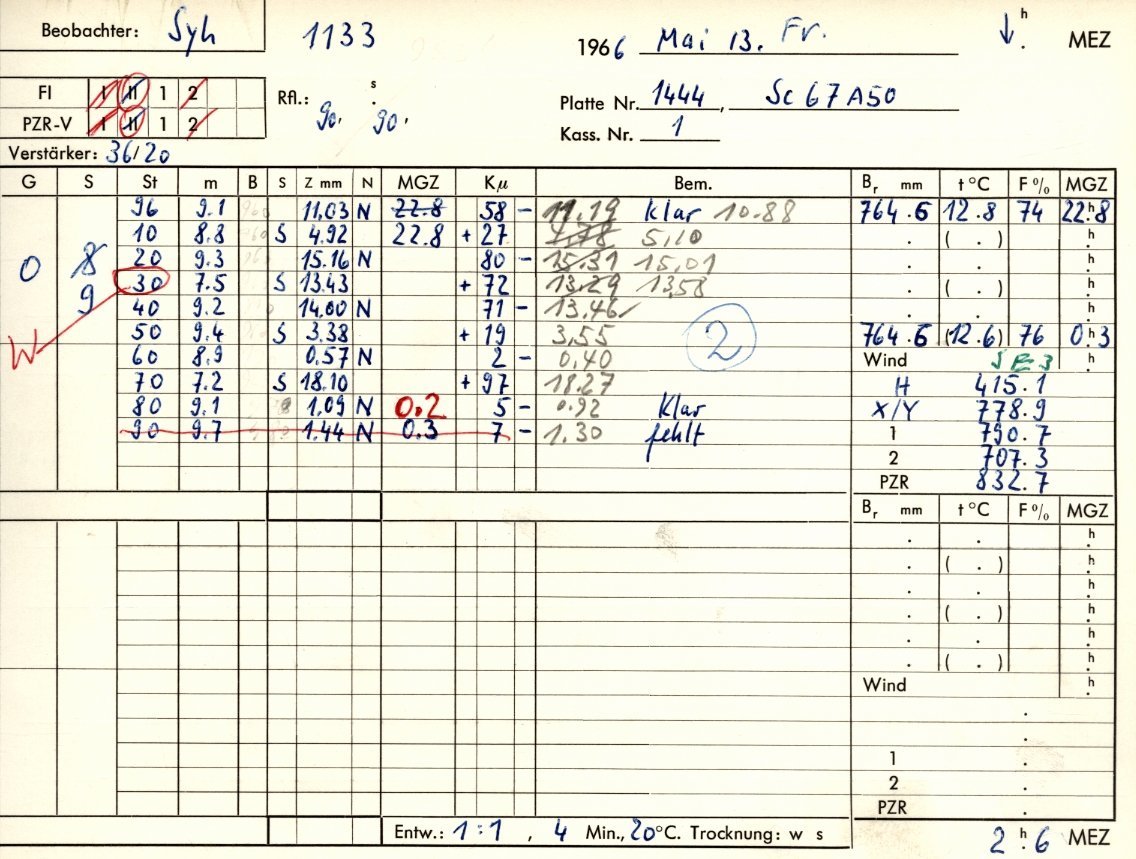 Beobachter: Syh 1133 1966 Mai 13. Fr. ↓ h . MEZ
FI I II 1 2 Rfl.: 90. s . 90. Platte Nr. 1444, Sc 67 A50
PZR-V I II 1 2 Kass. Nr. 1
Verstärker: 36/20
G S St m B S Z mm N MGZ Kμ Bem. Br mm t °C F % MGZ
96 9.1 11.03 N 22.8 58 - 11.19 klar 10.88 764.6 12.8 74 22h.8
10 8.8 S 4.92 22.8 + 27 4.78 5,10 . ( . ) h.
0 8 20 9.3 15.16 N 80 - 15.31 15,01 . . h.
9 30 7.5 S 13.43 + 72 13.29 13,58 . ( . ) h.
40 9.2 14.00 N 71 - 13.46 . . h.
W 50 9.4 S 3.38 + 19 3,55 2 764.6 (12.6) 76 0h.3
60 8.9 0.57 N 2 - 0,40 Wind SE 3 h.
70 7.2 S 18.10 + 97 18.27 H 415.1
80 9.1 1.09 N 0.2 5 - 0.92 klar X/Y 778.9
90 9.7 1.44 N 0.3 7 - 1.30 fehlt 1 790.7
2 707.3
PZR 832.7
Br mm t °C F % MGZ
. . h.
. ( . ) h.
. . h.
. ( . ) h.
. . h.
. ( . ) h.
Wind h.
.
.
1 .
2 .
PZR .
Entw.: 1:1, 4 Min., 20°C. Trocknung: w s 2h.6 MEZ